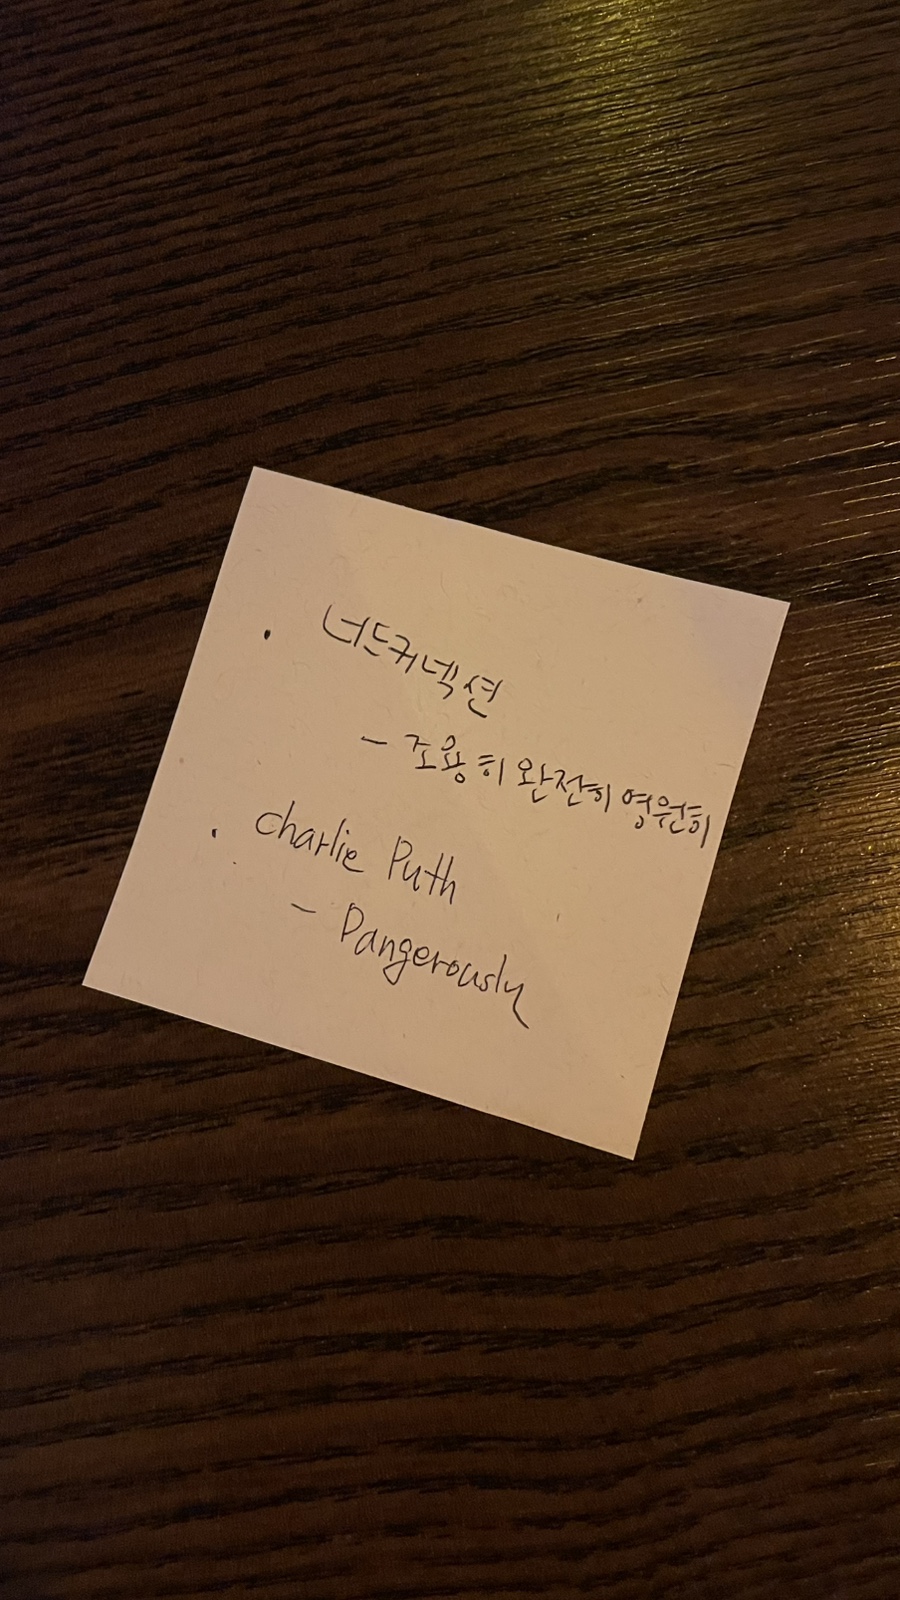 · 너드커넥션
- 조용히 완전히 영원히
· charlie Puth
- Dangerously